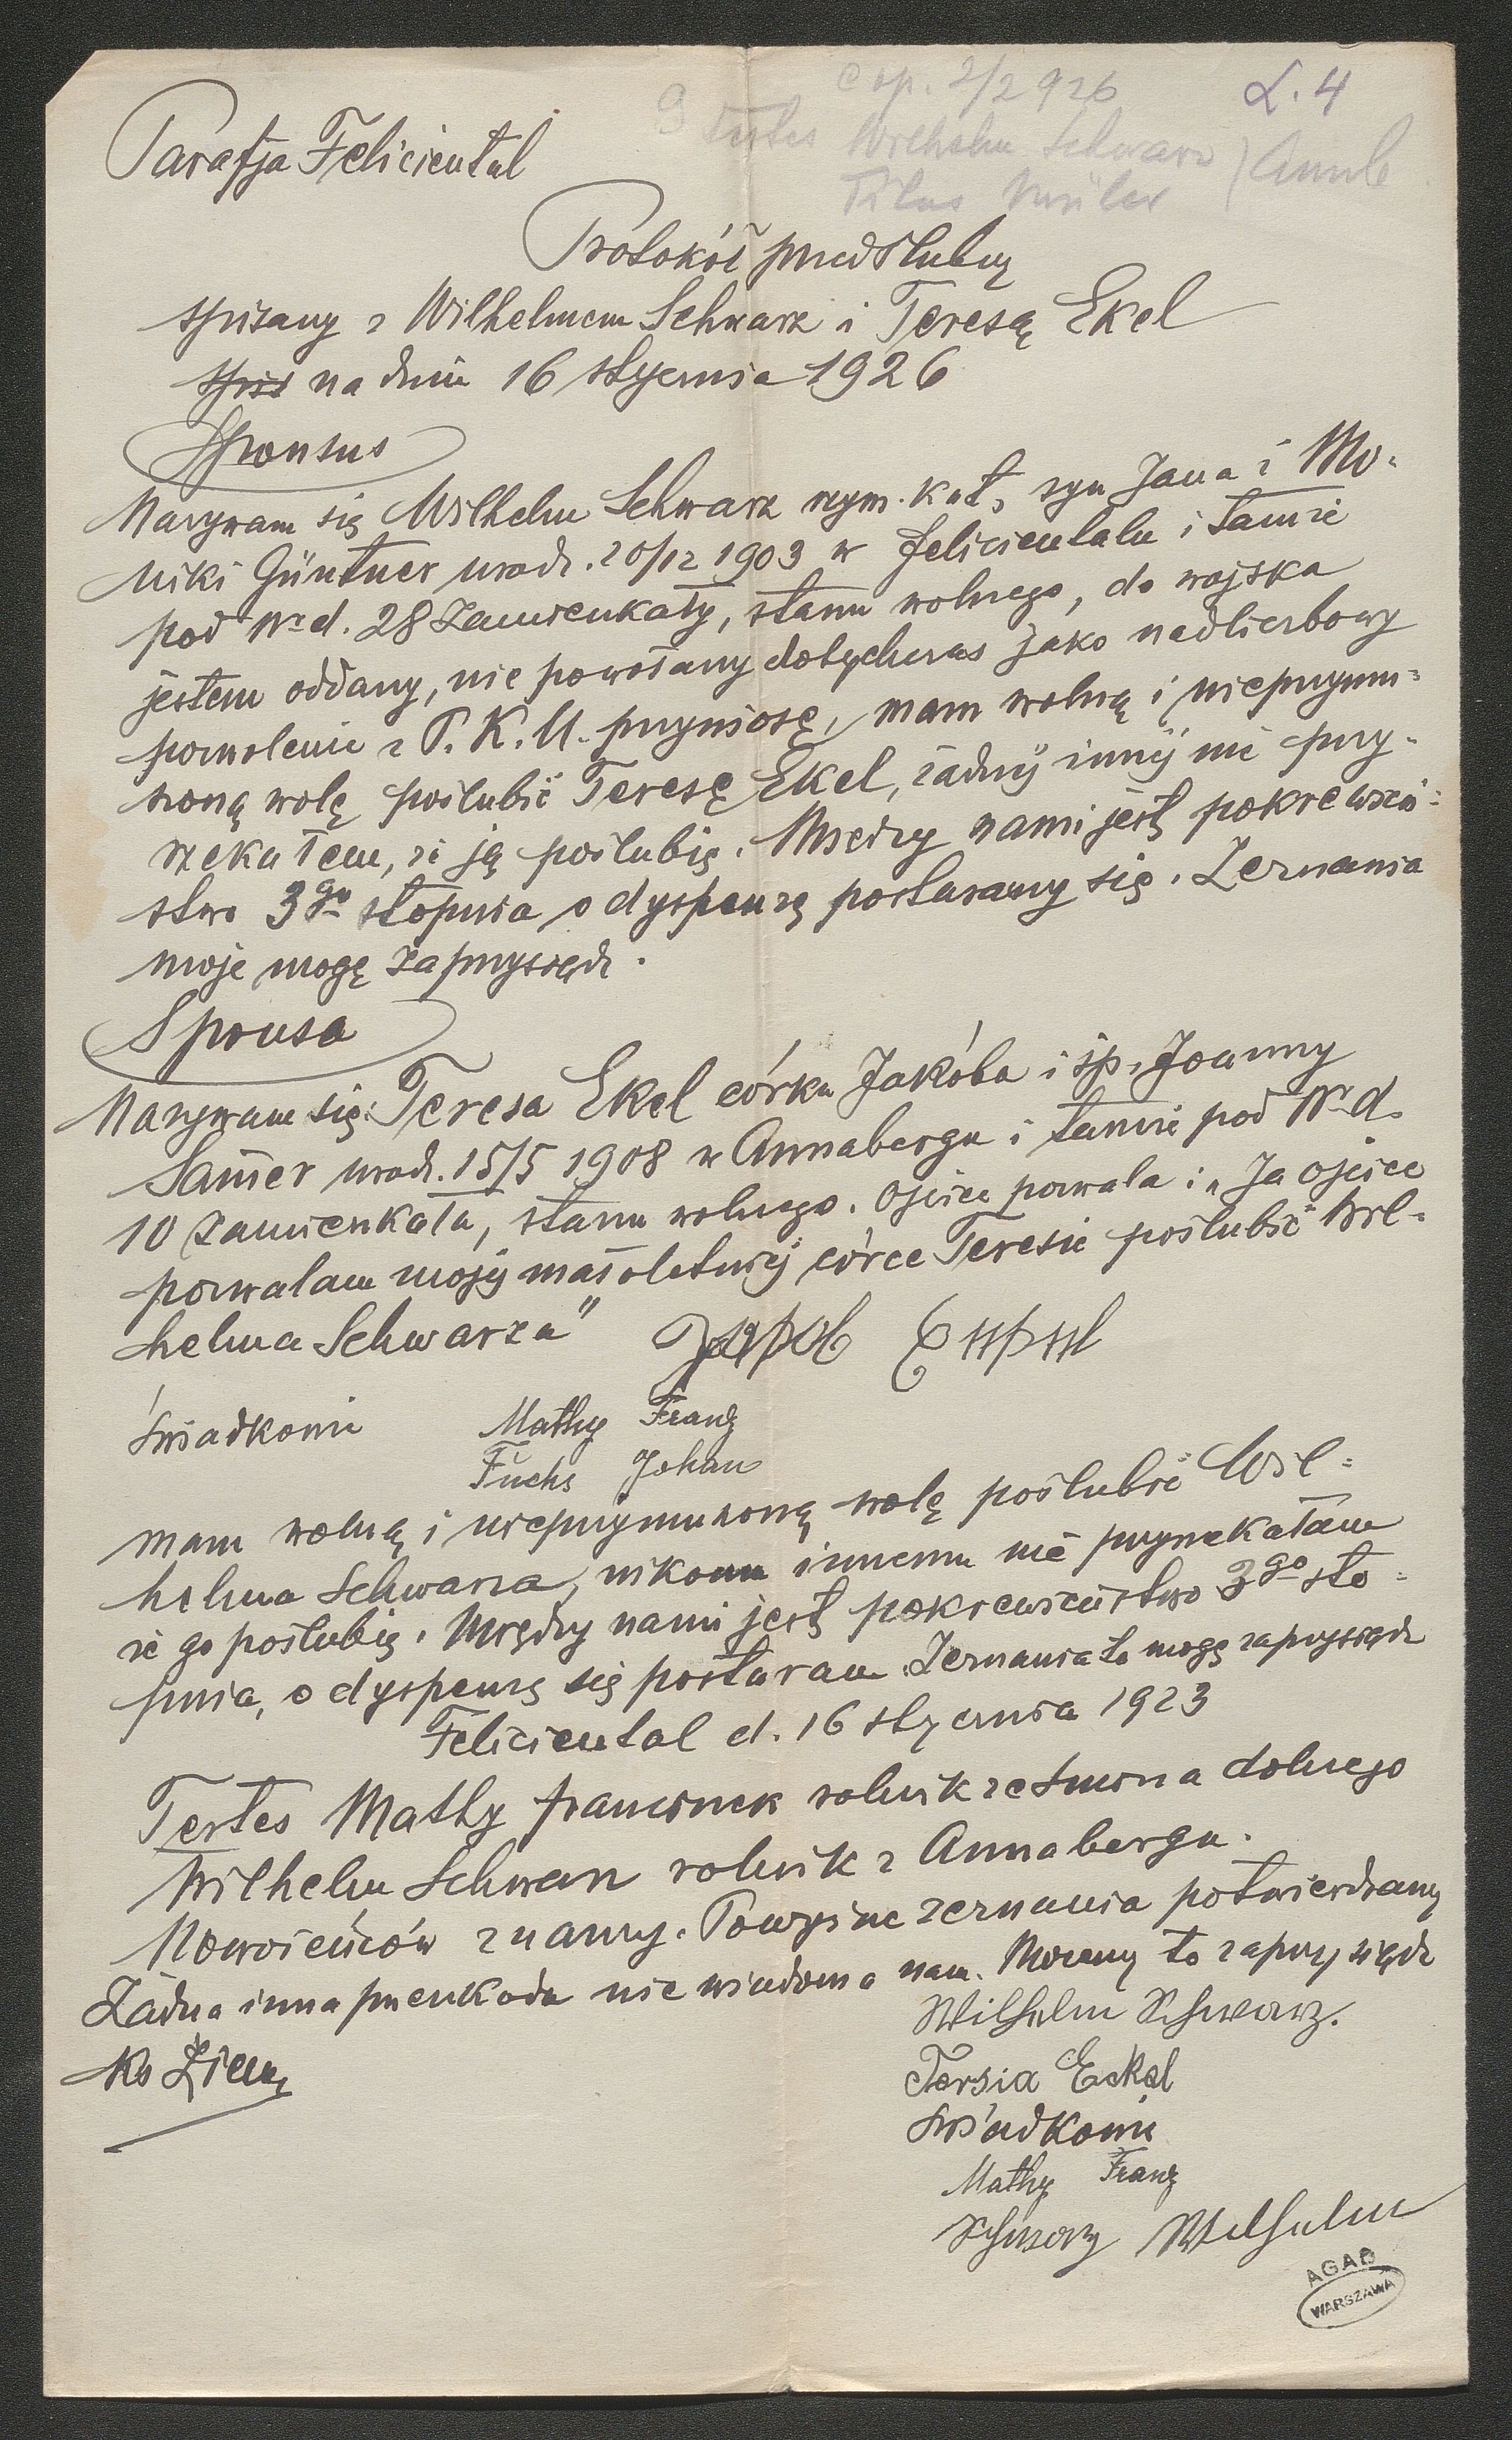 cop. 2/2 926
L. 4
testes Wilhelm Schwarz ) Annb
Titus Müller
Parafja Feliciental
Protokół przedślubny
spisany z Wilhelmem Schwarz i Teresą Ekel
na dniu 16 stycznia 1926
Sponsus
Nazywam się Wilhelm Schwarz rzym. kat, syn Jana i Mo-
niki Güntner urodz. 20/12 1903 w Felicientalu i tamże
pod Nr d. 28 zamieszkały, stanu wolnego, do wojska
jestem oddany, nie powołany dotychczas jako nadliczbowy
pozwolenie z P. K. U. przyniosę, mam wolną i nieprzymu-
szoną wolę poślubić Teresę Ekel, żadnéj innéj nie przy-
rzekałem, że ją poślubię. Między nami jest pokrewień-
stwo 3go stopnia o dyspenzę postaramy się. Zeznania
moje mogę zaprzysiądz.
Sponsa
Nazywam się Teresa Ekel córka Jakóba i śp. Joanny
Samer urodz. 15/5 1908 w Annabergu i tamże pod Nr d.
10 zamieszkała, stanu wolnego. Ojciec pozwala: "Ja ojciec
pozwalam mojéj małoletniéj córce Teresie poślubić Wil-
helma Schwarza"
Świadkowie Mathy Franz
Fuchs Johan
mam wolną i nieprzymuszoną wolę poślubić Wil-
helma Schwarza, nikomu innemu nie przyrzekałam
że go poślubię. Między nami jest pokrewieństwo 3go sto-
pnia, o dyspenzę się postaram. Zeznania te mogę zaprzysiądz
Feliciental d. 16 stycznia 1923
Testes Mathy Franciszek rolnik ze Smorza dolnego
Wilhelm Schwarz rolnik z Annabergu.
Nowożeńców znamy. Powyższe zeznania potwierdzamy
Żadna inna przeszkoda nie wiadoma nam. Możemy to zaprzysiądz
Wilhelm Schwarz.
ks Ziem
Tersia Eckel
Świadkowie
Mathy Franz
Schwarz Wilhelm
AGAD
WARSZAWA